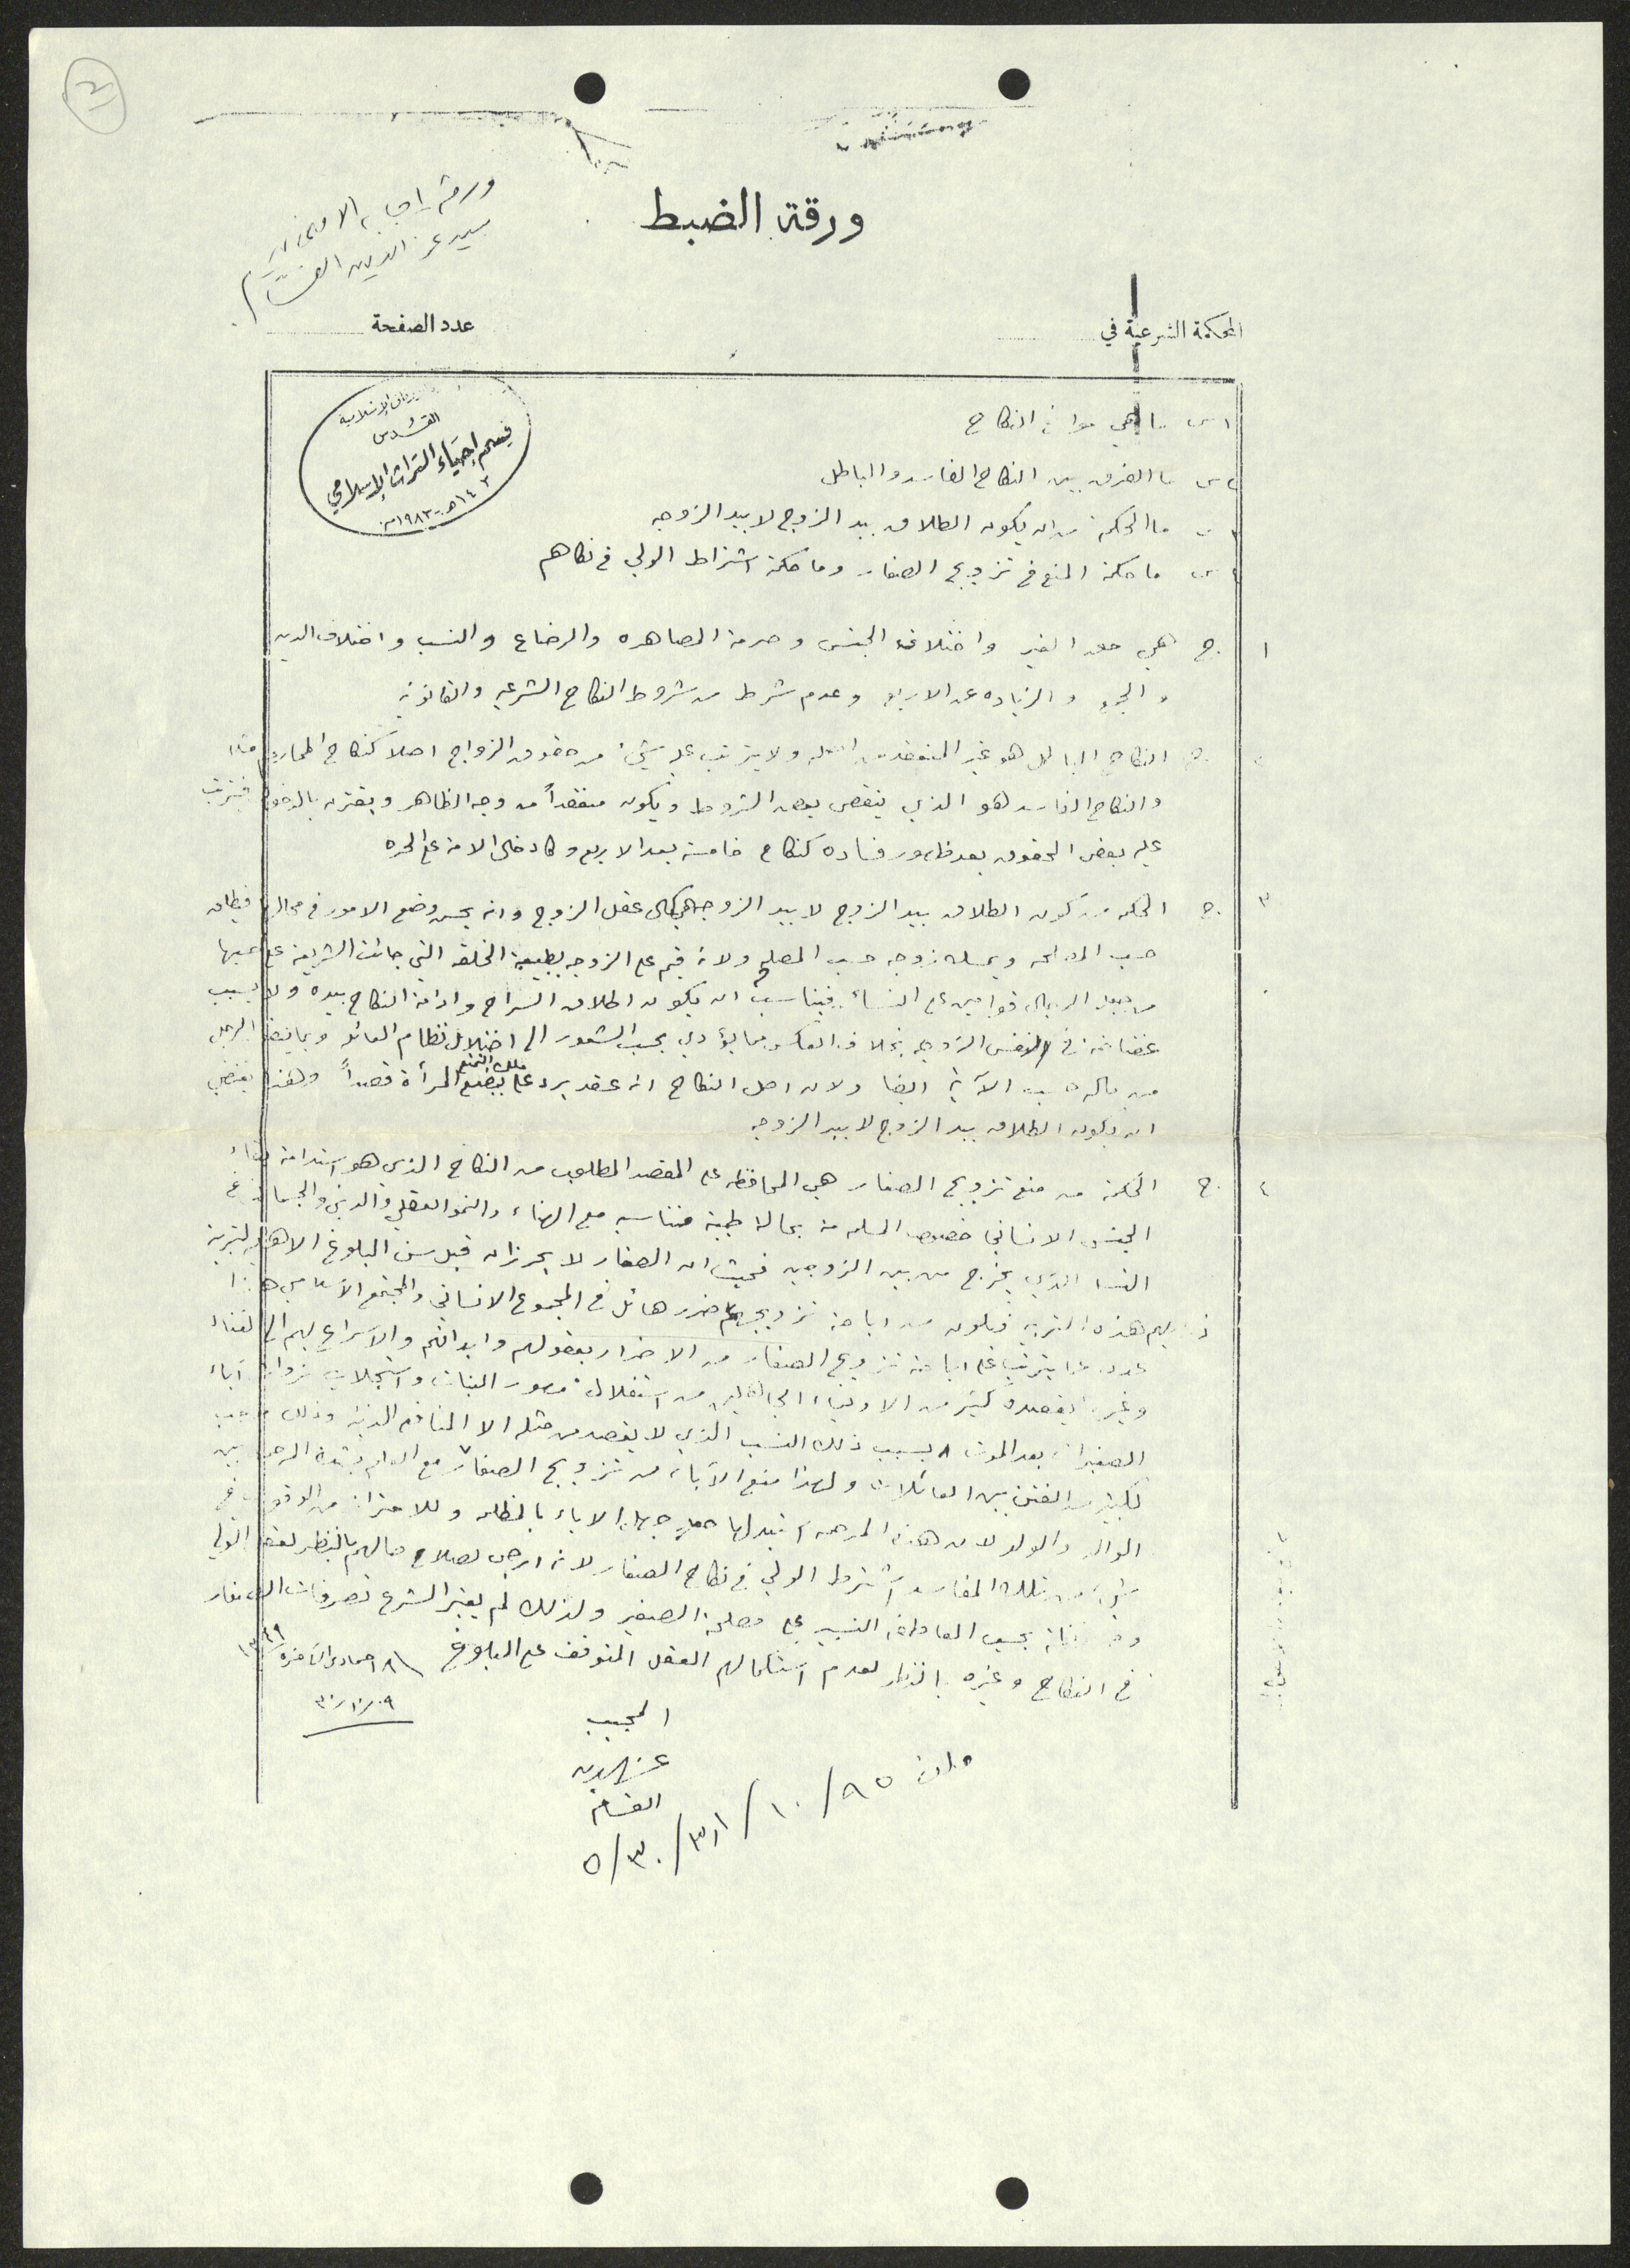 ٢
ورقة الضبط
ورقة اجابة الامتحان
سيد عز الدين القسام
المحكمة الشرعية في
عدد الصفحة
القدس
قسم إحياء التراث الإسلامي
١٤٠٣هـ - ١٩٨٣م
١ س ما هي موانع النكاح
٢ س ما الفرق بين النكاح الفاسد والباطل
س ما الحكمة من ان يكون الطلاق بيد الزوج لا بيد الزوجه
٤ س ما حكمة المنع في تزويج الصغار وما حكمة اشتراط الولي في نكاحهم
١ ج. هي حق الغير واختلاف الجنس وحرمة المصاهره والرضاع والنسب واختلاف الدين
والجمع والزياده عن الاربع وعدم شرط من شروط النكاح الشرعيه والقانونيه
ج. النكاح الباطل هو غير المنعقد من اصله ولا يترتب عليه شيء من حقوق الزواج اصلاً كنكاح المحارم مثلا
والنكاح الفاسد هو الذي ينقص بعض الشروط ويكون منعقداً من وجه الظاهر ويقترن بالدخول فيترتب
عليه بعض الحقوق بعد ظهور فساده كنكاح خامسة بعد الاربع وكادخال الامة على الحره
٣ ج. الحكمه من كون الطلاق بيد الزوج لا بيد الزوجه هي كمال عقل الزوج وانه يحسن وضع الامور في محالها فيطلق
حسب المصلحه ويمسك زوجه حسب المصلحه ولانه قيم على الزوجه بطبيعة الخلقه التي جائت الشريعه على
من جعل الرجال قوامين على النساء فيناسب ان يكون اطلاق السراح وادامة النكاح بيده ولا يسبب
في نفس الزوجه بخلاف العكس مما يؤدي بحسب الشعور الى اختلال نظام العائله وبما ينفقه الرجل
من ماله حسب الآية ايضا ولان اصل النكاح انه عقد يرد على ملك التمتع ببضع المرأة قصداً وهذا يقتضي
ان يكون الطلاق بيد الزوج لا بيد الزوجه
٤ ج. الحكمة من منع تزويج الصغار هي المحافظه على المقصد المطلوب من النكاح الذي هو استدامة بقاء
الجنس الانساني خصوص المسلم منه بحالة طيبة متناسبه مع الهناء والنمو العقلي والديني والجسماني في
النسل الذي يخرج من بين الزوجين فحيث ان الصغار لا يحرزان قبل سن البلوغ الاهليه لتربية
هذه التربيه فيكون من اباحة تزويجهم ضرر هائل في المجموع الانساني والمجتمع الاسلامي هذا
عدا عما يترتب على اباحة تزويج الصغار من الاضرار بعقولهم وابدانهم والاسراع بهم الى الفناء
كثير من الاولياء الجاهلين من استغلال مهور البنات واستجلاب ثروات آباء
الصغيرات بعد الموت بسبب ذلك النسب الذي لا يقصد من مثله الا المنافع الدنيه وذلك
لكثير من الفتن بين العائلات ولهذا منع الآباء من تزويج الصغار مع العلم بشدة الرحمة بين
الوالد والولد لان هذه المرحمه استبدلها جهلة الاباء بالمظلمه وللاحتراز من الوقوع في
شيء من تلك المفاسد اشترط الولي في نكاح الصغار لانه ارجى لصلاح حالهم بالنظر لعقل الولي
بحسب العاطفه النسبيه على مصلحة الصغير ولذلك لم يعتبر الشرع تصرفات الصغار
في النكاح وغيره بالنظر لعدم استكمالهم العقل المتوقف على البلوغ ١٨ جمادى الآخرة ١٣٤٩
٣٠/١٠/٩
المجيب
عز الدين
القسام
٥/٣٠/٣١/١٠/٨٥